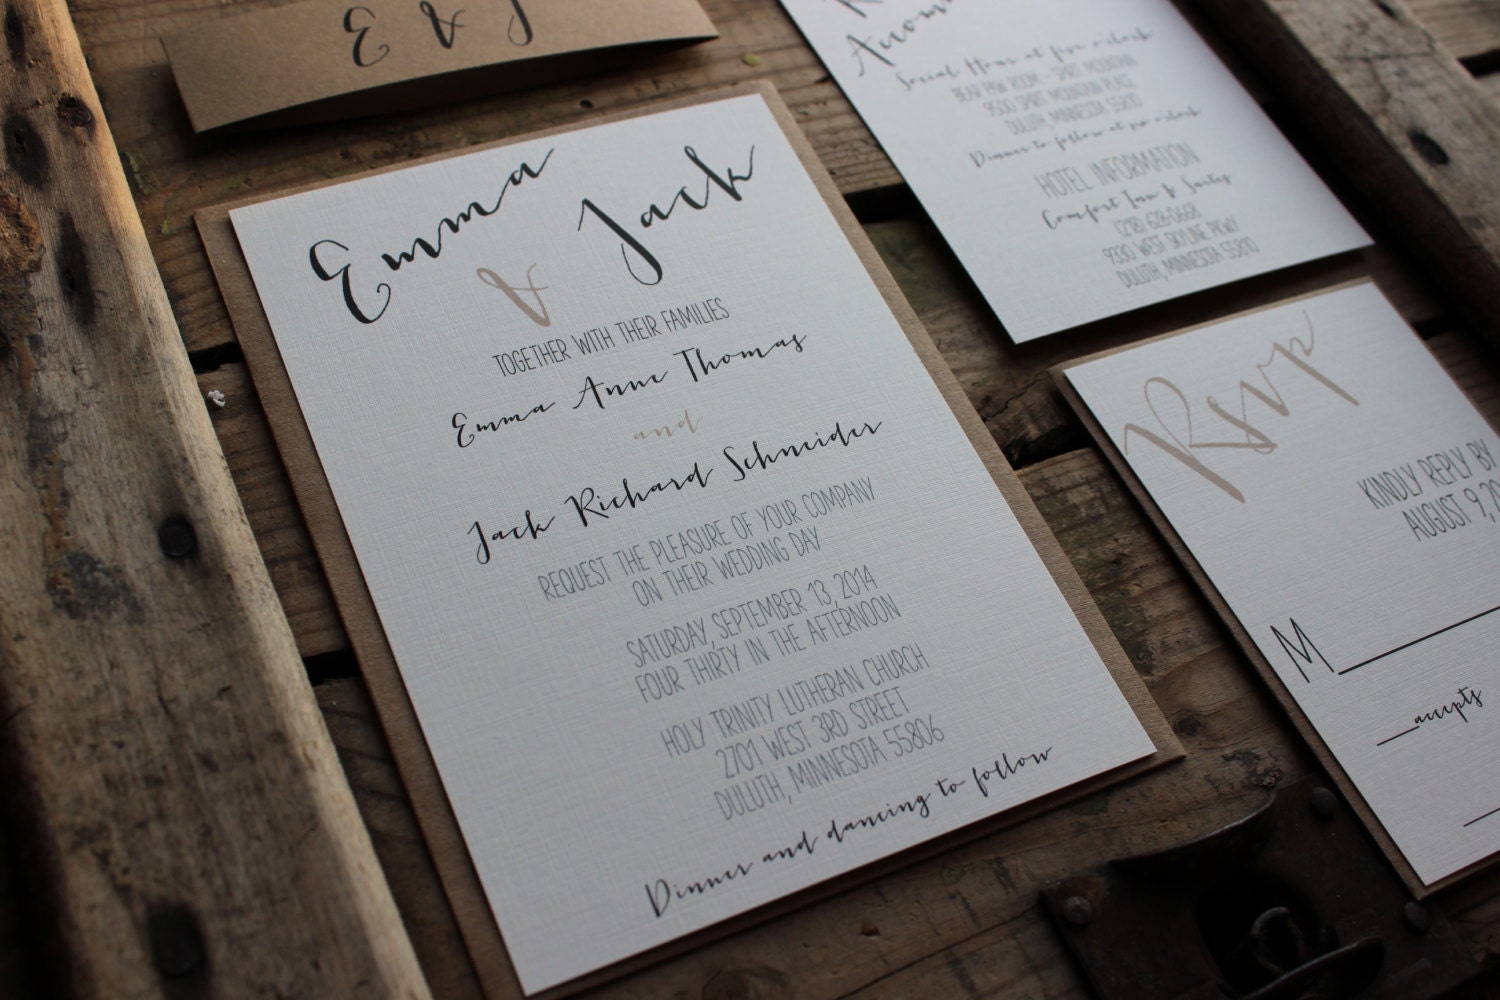 E & J
Emma
&
Jack
TOGETHER WITH THEIR FAMILIES
Emma Anne Thomas
and
Jack Richard Schneider
REQUEST THE PLEASURE OF YOUR COMPANY
ON THEIR WEDDING DAY
SATURDAY, SEPTEMBER 13, 2014
FOUR THIRTY IN THE AFTERNOON
HOLY TRINITY LUTHERAN CHURCH
2701 WEST 3RD STREET
DULUTH, MINNESOTA 55806
Dinner and dancing to follow
Social Hour at five o'clock
BEAR PAW ROOM - SPIRIT MOUNTAIN
9500 SPIRIT MOUNTAIN PLACE
DULUTH, MINNESOTA 55810
Dinner to follow at six o'clock
HOTEL INFORMATION
Comfort Inn & Suites
(218) 628-0668
9330 WEST SKYLINE PKWY
DULUTH, MINNESOTA 55810
Rsvp
KINDLY REPLY BY
AUGUST 9, 20
M
accepts